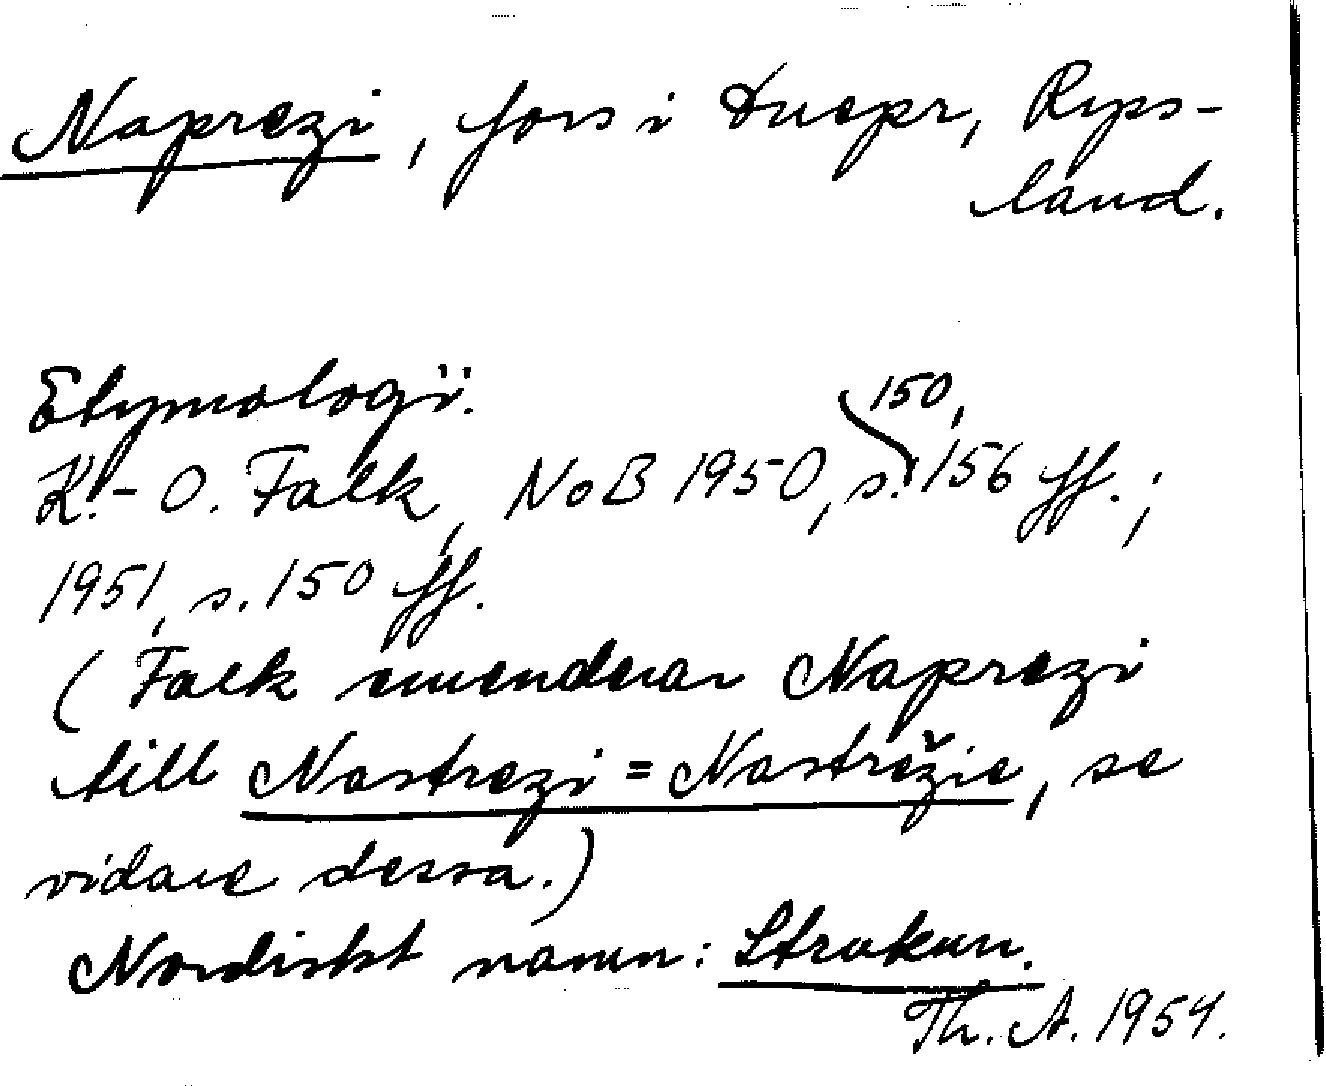 Naprezi, fors i Dnepr, Ryss-
land.
Etymologi:
K.-O. Falk, NoB 1950, s. 150, 156 ff.;
1951, s. 150 ff.
(Falk emenderar Naprezi
till Nastrezi = Nastrěžie, se
vidare dessa.)
Nordiskt namn: Strukun.
Th. A. 1954.